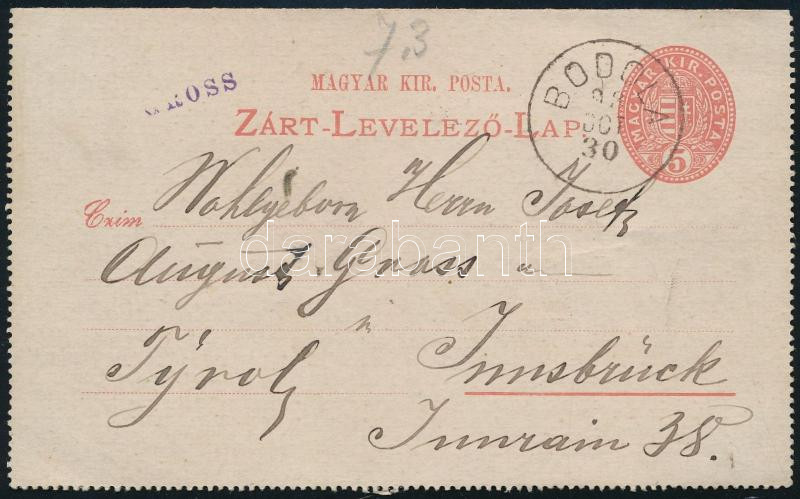 7,3
GROSS
MAGYAR KIR. POSTA.
ZÁRT-LEVELEZŐ-LAP
BODOLA
OCT
30
MAGYAR KIR. POSTA
5
Czim Wohlgeborn Herrn Josef
August Gross
darabanth
in
Tyrol Innsbrück
Innrain 38.